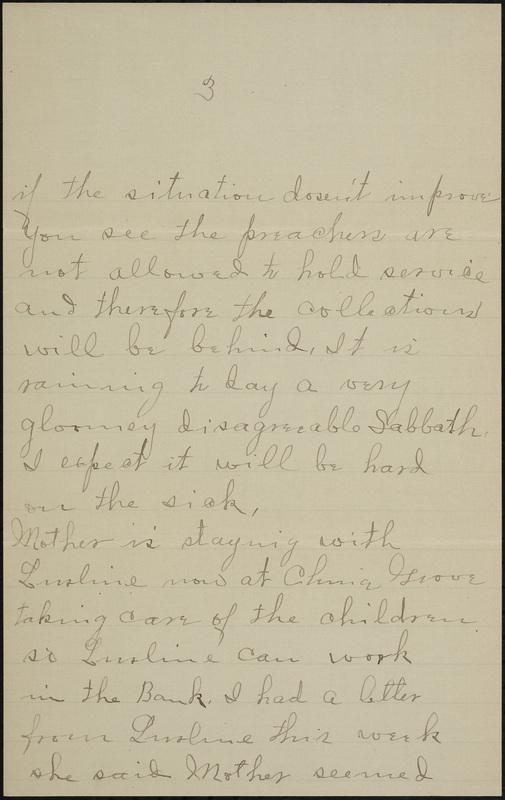 3
if the situation dosen't improve
You see the preachers are
not allowed to hold service
and therefore the collections
will be behind, It is
raining to day a very
gloomey disagreeable Sabbath.
I expect it will be hard
on the sick,
Mother is staynig with
Lurline now at China Grove
taking care of the children
so Lurline can work
in the Bank. I had a letter
from Lurline this week
she said Mother seemed